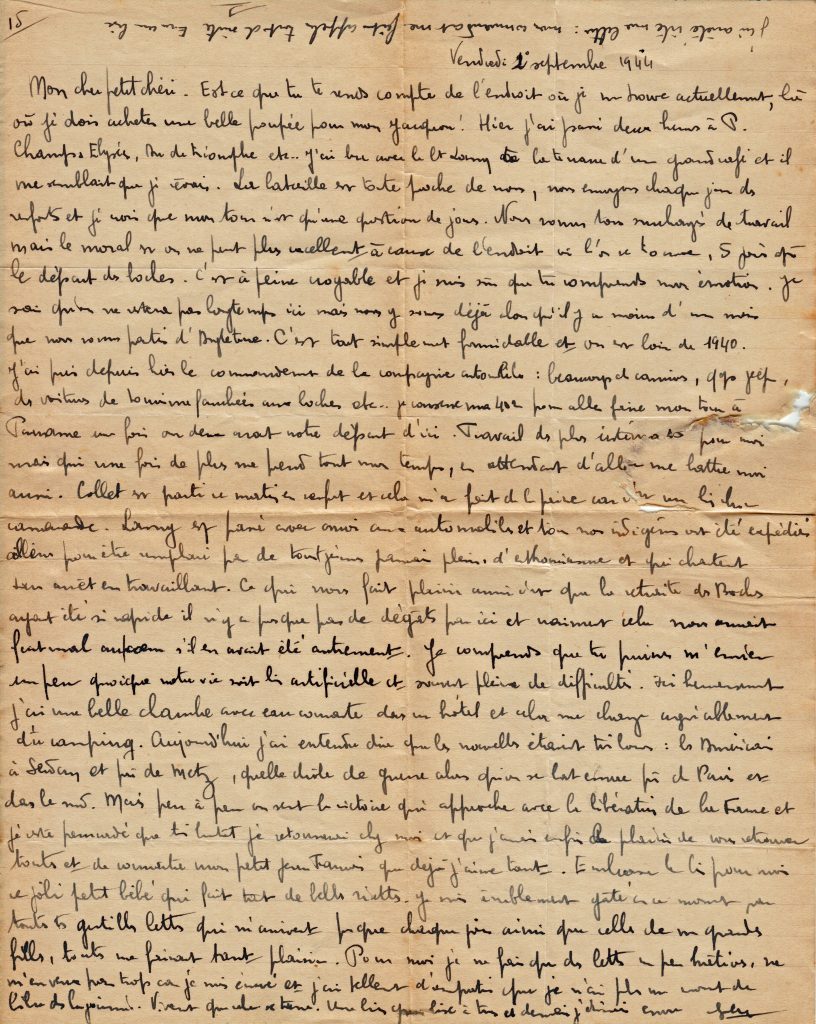 51
j'ai arrêté vite ma lettre : mon commandant me fait appeler tout de suite
Vendredi 1er septembre 1944
Mon cher petit chéri. Est ce que tu te rends compte de l'endroit où je me trouve actuellement, là
où je dois acheter une belle poupée pour mon Jacquou! Hier j'ai passé deux heures à P.
Champs Elysées, Arc de triomphe etc.. J'ai bu avec le Lt Lamy à la terrasse d'un grand café et il
me semblait que je rêvais. La bataille est toute proche de nous, nous envoyons chaque jour des
renforts et je crois que mon tour n'est qu'une question de jours. Nous sommes tous surchargés de travail
mais le moral est on ne peut plus excellent à cause de l'endroit où l'on se trouve, 5 jours après
le départ des boches. C'est à peine croyable et je suis sûr que tu comprends mon émotion. Je
sais qu'on ne restera pas longtemps ici mais nous y sommes déjà alors qu'il y a moins d'un mois
que nous sommes partis d'Angleterre. C'est tout simplement formidable et on est loin de 1940.
J'ai pris depuis hier le commandement de la compagnie automobile : beaucoup de camions, qqs jeeps,
des voitures de tourisme fauchées aux boches etc.. je conserve ma pour aller faire mon tour à
Paname une fois ou deux avant notre départ d'ici. Travail des plus intéressants pour moi
mais qui une fois de plus me prend tout mon temps, en attendant d'aller me battre moi
aussi. Collet est parti ce matin en renfort et cela m'a fait de la peine car c'est un très bon
camarade. Lamy est passé avec moi aux automobiles et tous nos indigènes ont été expédiés
ailleurs pour être remplacés par de jeunes parisiens pleins d'enthousiasme et qui chantent
sans arrêt en travaillant. Ce qui nous fait plaisir aussi c'est que la retraite des Boches
ayant été si rapide il n'y a presque pas de dégâts par ici et vraiment cela nous aurait
fait mal au coeur s'il en avait été autrement. Je comprends que tu puisses m'envier
un peu quoique notre vie soit très artificielle et souvent pleine de difficultés. Ici heureusement
j'ai une belle chambre avec eau courante dans un hôtel et cela me change agréablement
du camping. Aujourd'hui j'ai entendu dire que les nouvelles étaient très bonnes : les Américains
à Sedan et près de Metz, quelle drôle de guerre alors qu'on se bat encore près de Paris et
dans le sud. Mais peu à peu on sent la victoire qui approche avec la libération de la France et
je reste persuadé que très bientôt je retournerai chez moi et que j'aurai enfin le plaisir de vous retrouver
toutes et de connaître mon petit Jean François que déjà j'aime tant. Embrasse le bien pour moi
ce joli petit bébé qui fait tant de belles risettes. Je suis terriblement gâté en ce moment par
toutes tes gentilles lettres qui m'arrivent presque chaque jour ainsi que celles de mes grandes
filles, toutes me faisant tant plaisir. Pour moi je ne fais que des lettres un peu hâtives, ne
m'en veux pas trop car je suis énervé et j'ai tellement d'empêchements que je n'ai plus un moment de
libre dans la journée. Vivement que cela se termine. Une bise à tous et demain j'écrirai encore